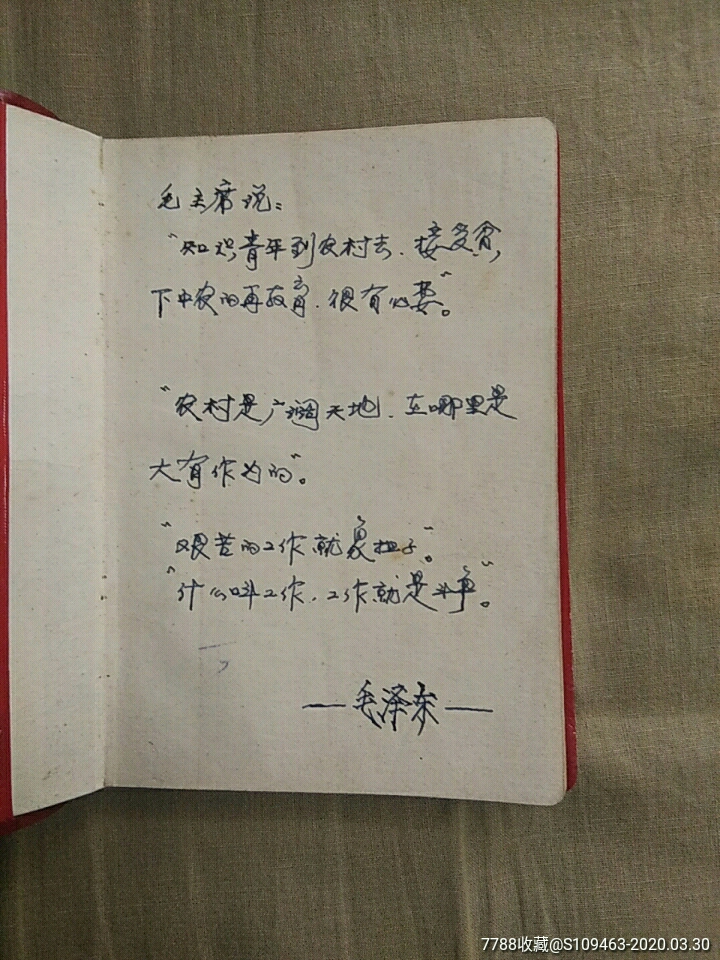 毛主席说：
“知识青年到农村去．接受贫，
下中农的再教育．很有必要”。
“农村是广阔天地．在哪里是
大有作为的”。
“艰苦的工作就象担子”。
“什么叫工作．工作就是斗争”。
—毛泽东—
7788收藏@S109463-2020.03.30